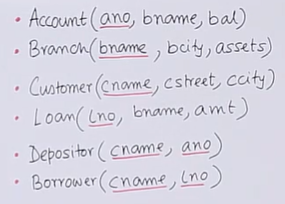 • Account(ano, bname, bal)
• Branch(bname, bcity, assets)
• Customer(cname, cstreet, ccity)
• Loan(lno, bname, amt)
• Depositor(cname, ano)
• Borrower(cname, lno)